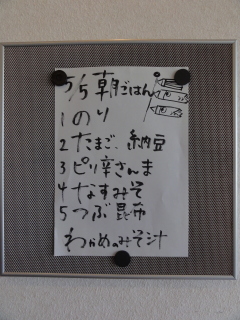 5/5 朝ごはん
1 のり
2 たまご、納豆
3 ピリ辛さんま
4 なすみそ
5 つぶ昆布
わかめのみそ汁